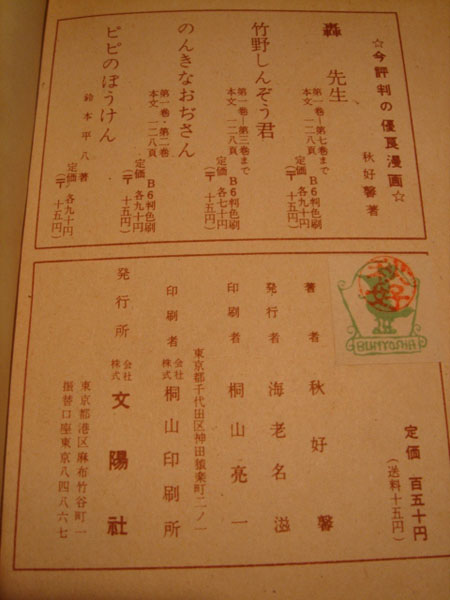 ☆今評判の優良漫画☆
秋好馨著
轟先生
第一巻—第七巻まで B6判色刷
本文 一二八頁 定価 各九十円
(〒 十五円)
竹野しんぞう君
第一巻—第三巻まで B6判色刷
本文 一二八頁 定価 各七十円
(〒 十五円)
のんきなおぢさん
第一巻・第二巻 B6判色刷
本文 一二八頁 定価 各九十円
(〒 十五円)
ピピのぼうけん
鈴木平八著
定価 各九十円
(〒 十五円)
定価 百五十円
(送料十五円)
BUNYOSHA
著者 秋好馨
発行者 海老名滋
印刷者 桐山亮一
東京都千代田区神田猿楽町二ノ一
印刷者 株式会社 桐山印刷所
発行所 株式会社 文陽社
東京都港区麻布竹谷町一
振替口座東京八四八六七